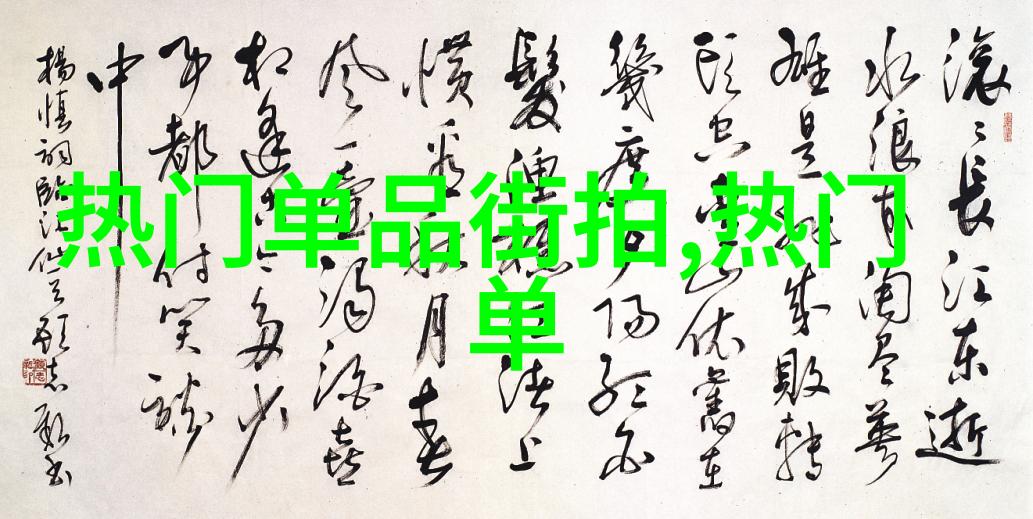 热门单品街拍,热门
单
滚〻長江东逝
水浪花淘尽英
雄是非成敗轉
头空青山依舊在
幾度夕阳红白
髮渔樵江渚上
惯看秋月春
风一壶浊酒喜
相逢古今多少
事都付笑谈
中
楊慎詞临江仙